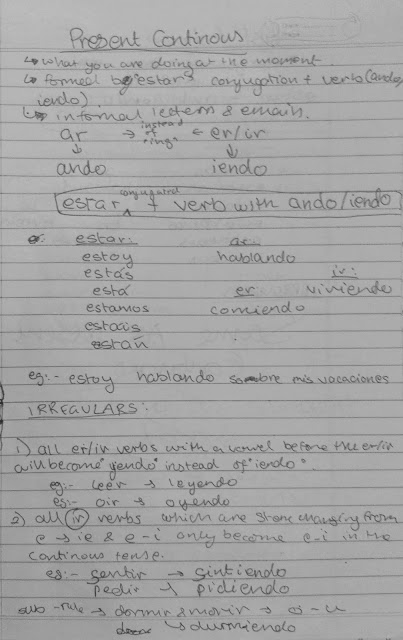 Present Continous
↳ what you are doing at the moment.
↳ formed by "estar" conjugation + verb (ando/
iendo).
↳ informal letters & emails.
ar → instead of "ing" ← er/ir
↓ ↓
ando iendo
estar conjugated + verb with ando/iendo
estar: ar:
estoy hablando
estás ir:
está er: viviendo
estamos comiendo
estais
estan
eg:- estoy hablando sobre mis vacaciones
IRREGULARS:
1) all er/ir verbs with a vowel before the er/ir
will become "yendo" instead of "iendo".
eg:- leer → leyendo
eg:- oir → oyendo
2) all ir verbs which are stem changing from
e → ie & e - i only become e-i in the
continous tense.
eg:- sentir → sintiendo
pedir → pidiendo
sub-rule → dormir & morir → o - u
↳ durmiendo